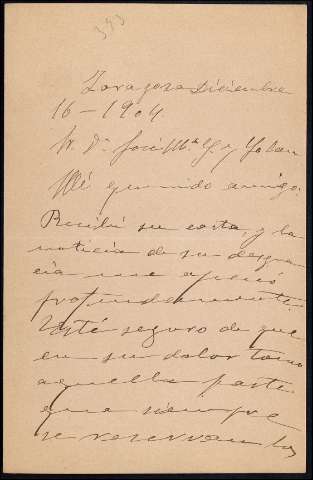 393
Zaragoza Diciembre
16 - 1904.
Sr. Dn. José Ma. G. y Galan
Mi querido amigo:
Recibí su carta, y la
noticia de su desgra
cia me apenó
profundamente.
Esté seguro de que
en su dolor tomo
aquella parte
que siempre
se reservan los